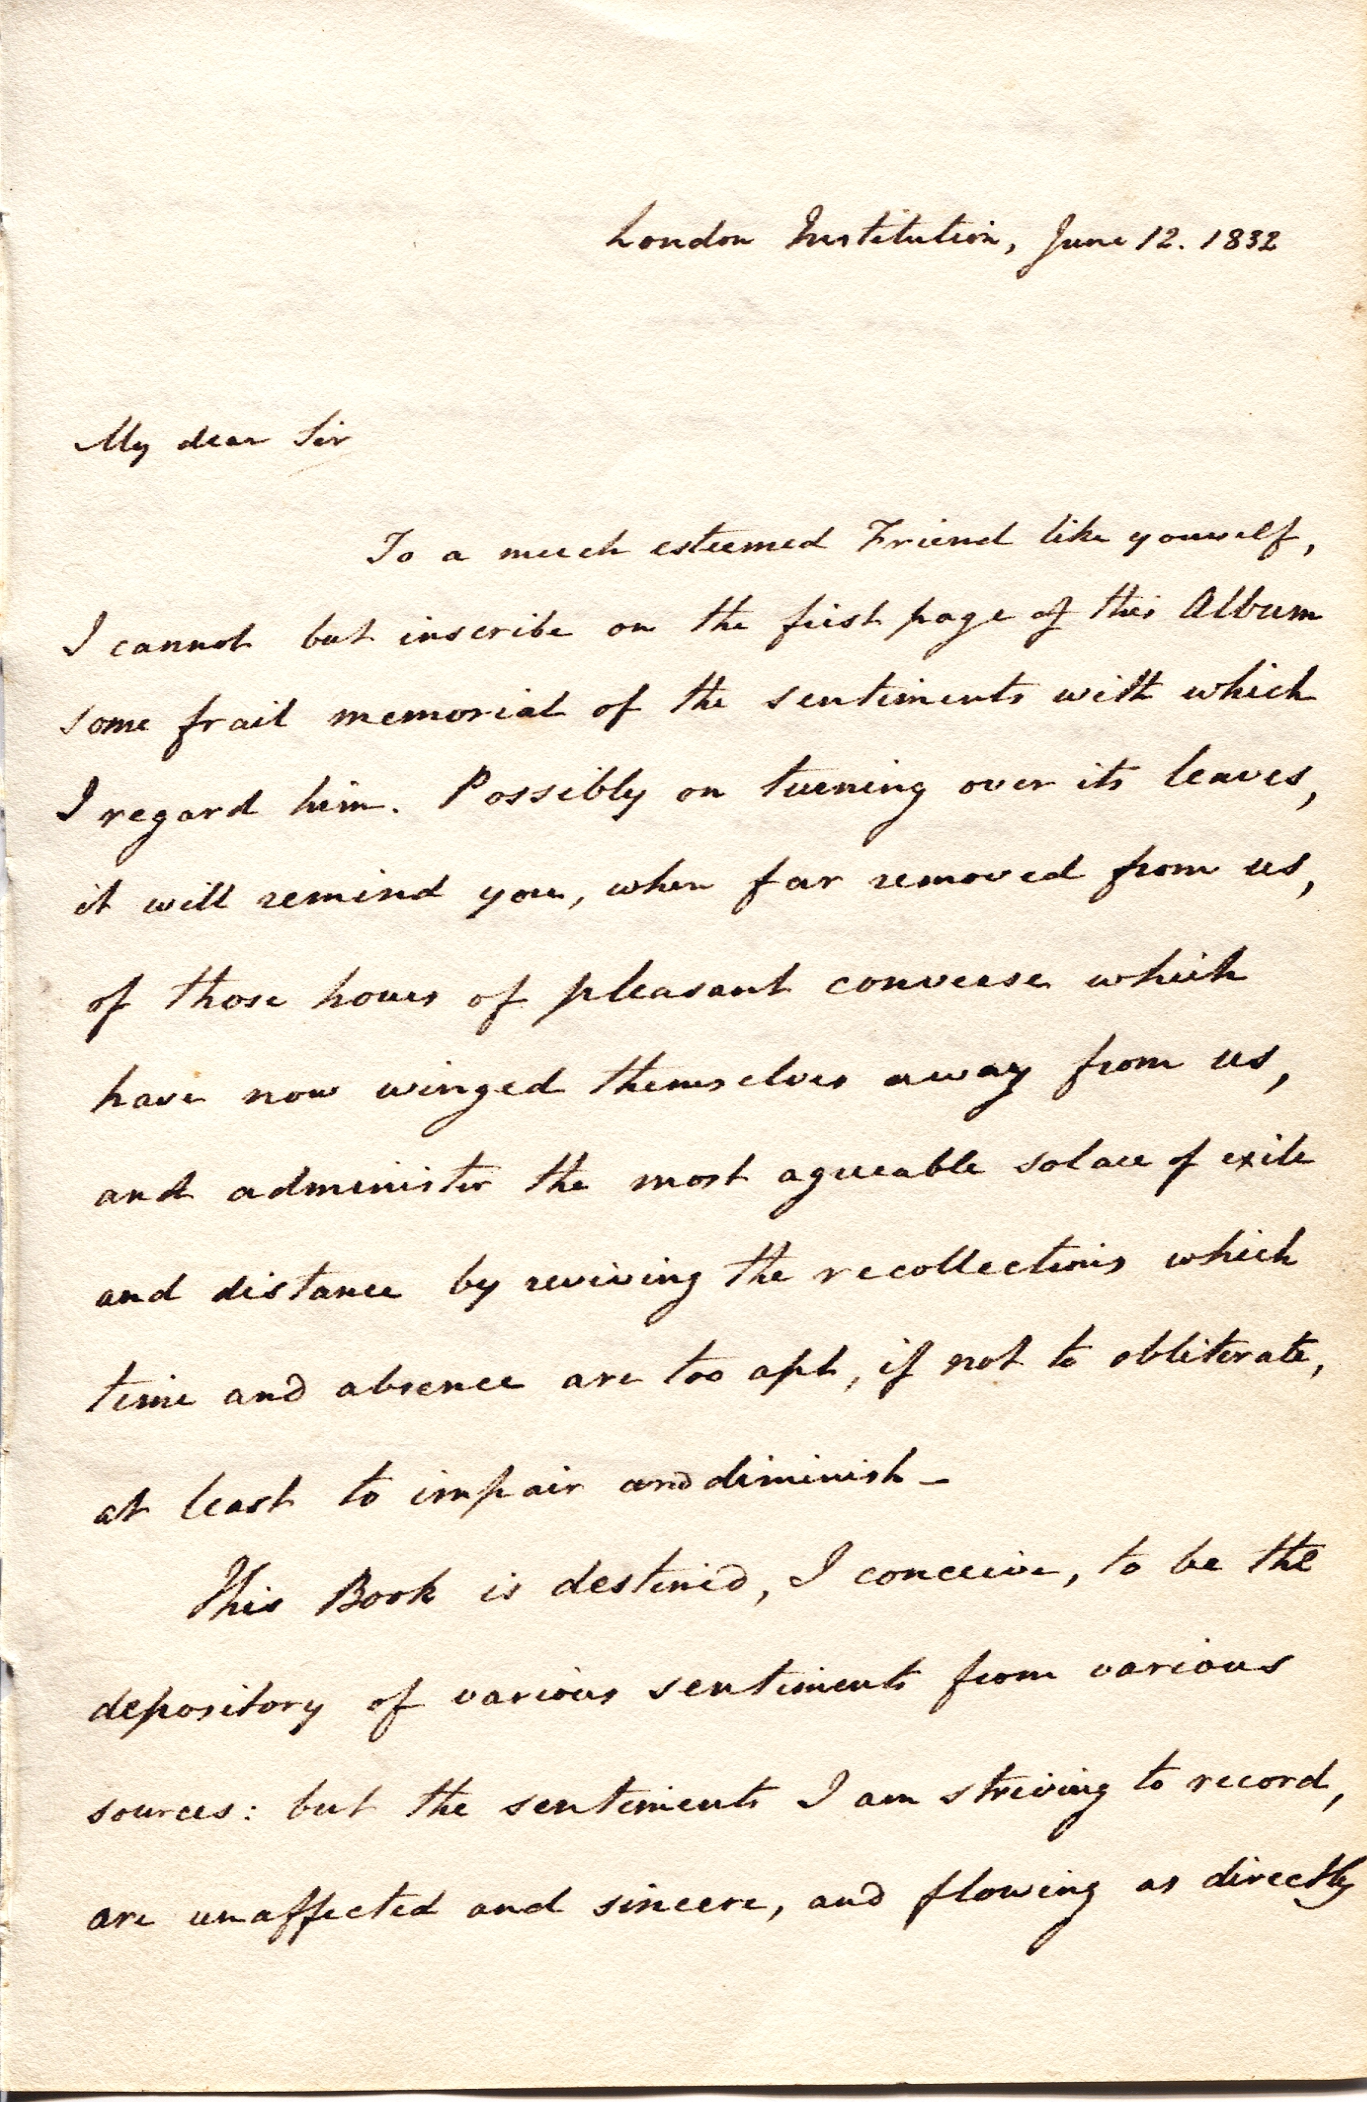 London Institution, June 12. 1832
My dear Sir
To a much esteemed Friend like yourself,
I cannot but inscribe on the first page of this Album
some frail memorial of the sentiments with which
I regard him. Possibly on turning over its leaves,
it will remind you, when far removed from us,
of those hours of pleasant converse which
have now winged themselves away from us,
and administer the most agreeable solace of exile
and distance by reviving the recollections which
time and absence are too apt, if not to obliterate,
at least to impair and diminish –
This Book is destin'd, I conceive, to be the
depository of various sentiments from various
sources: but the sentiments I am striving to record,
are unaffected and sincere, and flowing as directly